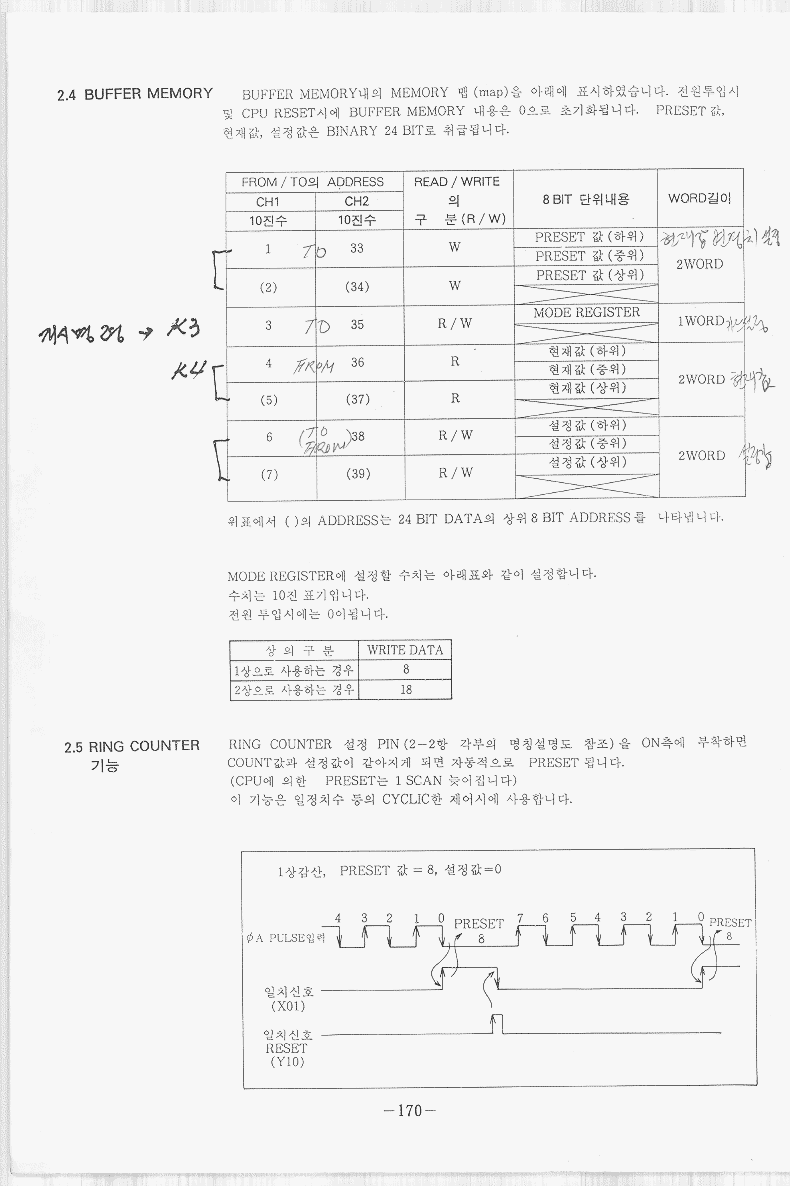 2.4 BUFFER MEMORY
BUFFER MEMORY내의 MEMORY 맵 (map)을 아래에 표시하였습니다. 전원투입시
및 CPU RESET시에 BUFFER MEMORY 내용은 0으로 초기화됩니다. PRESET 값,
현재값, 설정값은 BINARY 24 BIT로 취급됩니다.
FROM / TO의 ADDRESS
READ / WRITE
의
구 분 (R / W)
8 BIT 단위내용
WORD길이
CH1 CH2
10진수 10진수
1 TO 33 W
PRESET 값 (하위)
PRESET 값 (중위)
2WORD
(2) (34) W
PRESET 값 (상위)
→ K3
3 TO 35 R / W
MODE REGISTER
1WORD
K4
4 FROM 36 R
현재값 (하위)
현재값 (중위)
2WORD 현재값
(5) (37) R
현재값 (상위)
6 (TO FROM) 38 R / W
설정값 (하위)
설정값 (중위)
2WORD 설정값
(7) (39) R / W
설정값 (상위)
위표에서 ( )의 ADDRESS는 24 BIT DATA의 상위 8 BIT ADDRESS를 나타냅니다.
MODE REGISTER에 설정할 수치는 아래표와 같이 설정합니다.
수치는 10진 표기입니다.
전원 투입시에는 0이됩니다.
상 의 구 분 WRITE DATA
1상으로 사용하는 경우 8
2상으로 사용하는 경우 18
2.5 RING COUNTER
기능
RING COUNTER 설정 PIN (2-2항 각부의 명칭설명도 참조) 을 ON측에 부착하면
COUNT값과 설정값이 같아지게 되면 자동적으로 PRESET 됩니다.
(CPU에 의한 PRESET는 1 SCAN 늦어집니다)
이 기능은 일정치수 등의 CYCLIC한 제어시에 사용합니다.
1상감산, PRESET 값 = 8, 설정값=0
4 3 2 1 0 PRESET 7 6 5 4 3 2 1 0 PRESET
øA PULSE입력 8 8
일치신호
(X01)
일치신호
RESET
(Y10)
-170-